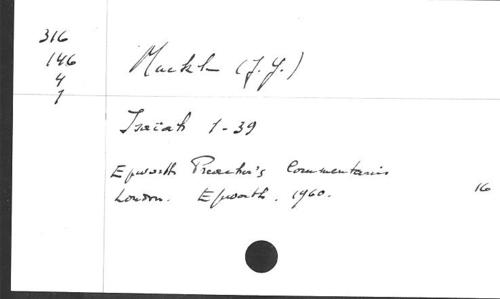 316
146
4
1
(J. Y.)
Isaiah 1-39
Epworth Preacher's Commentaries
London. Epworth. 1960.
16